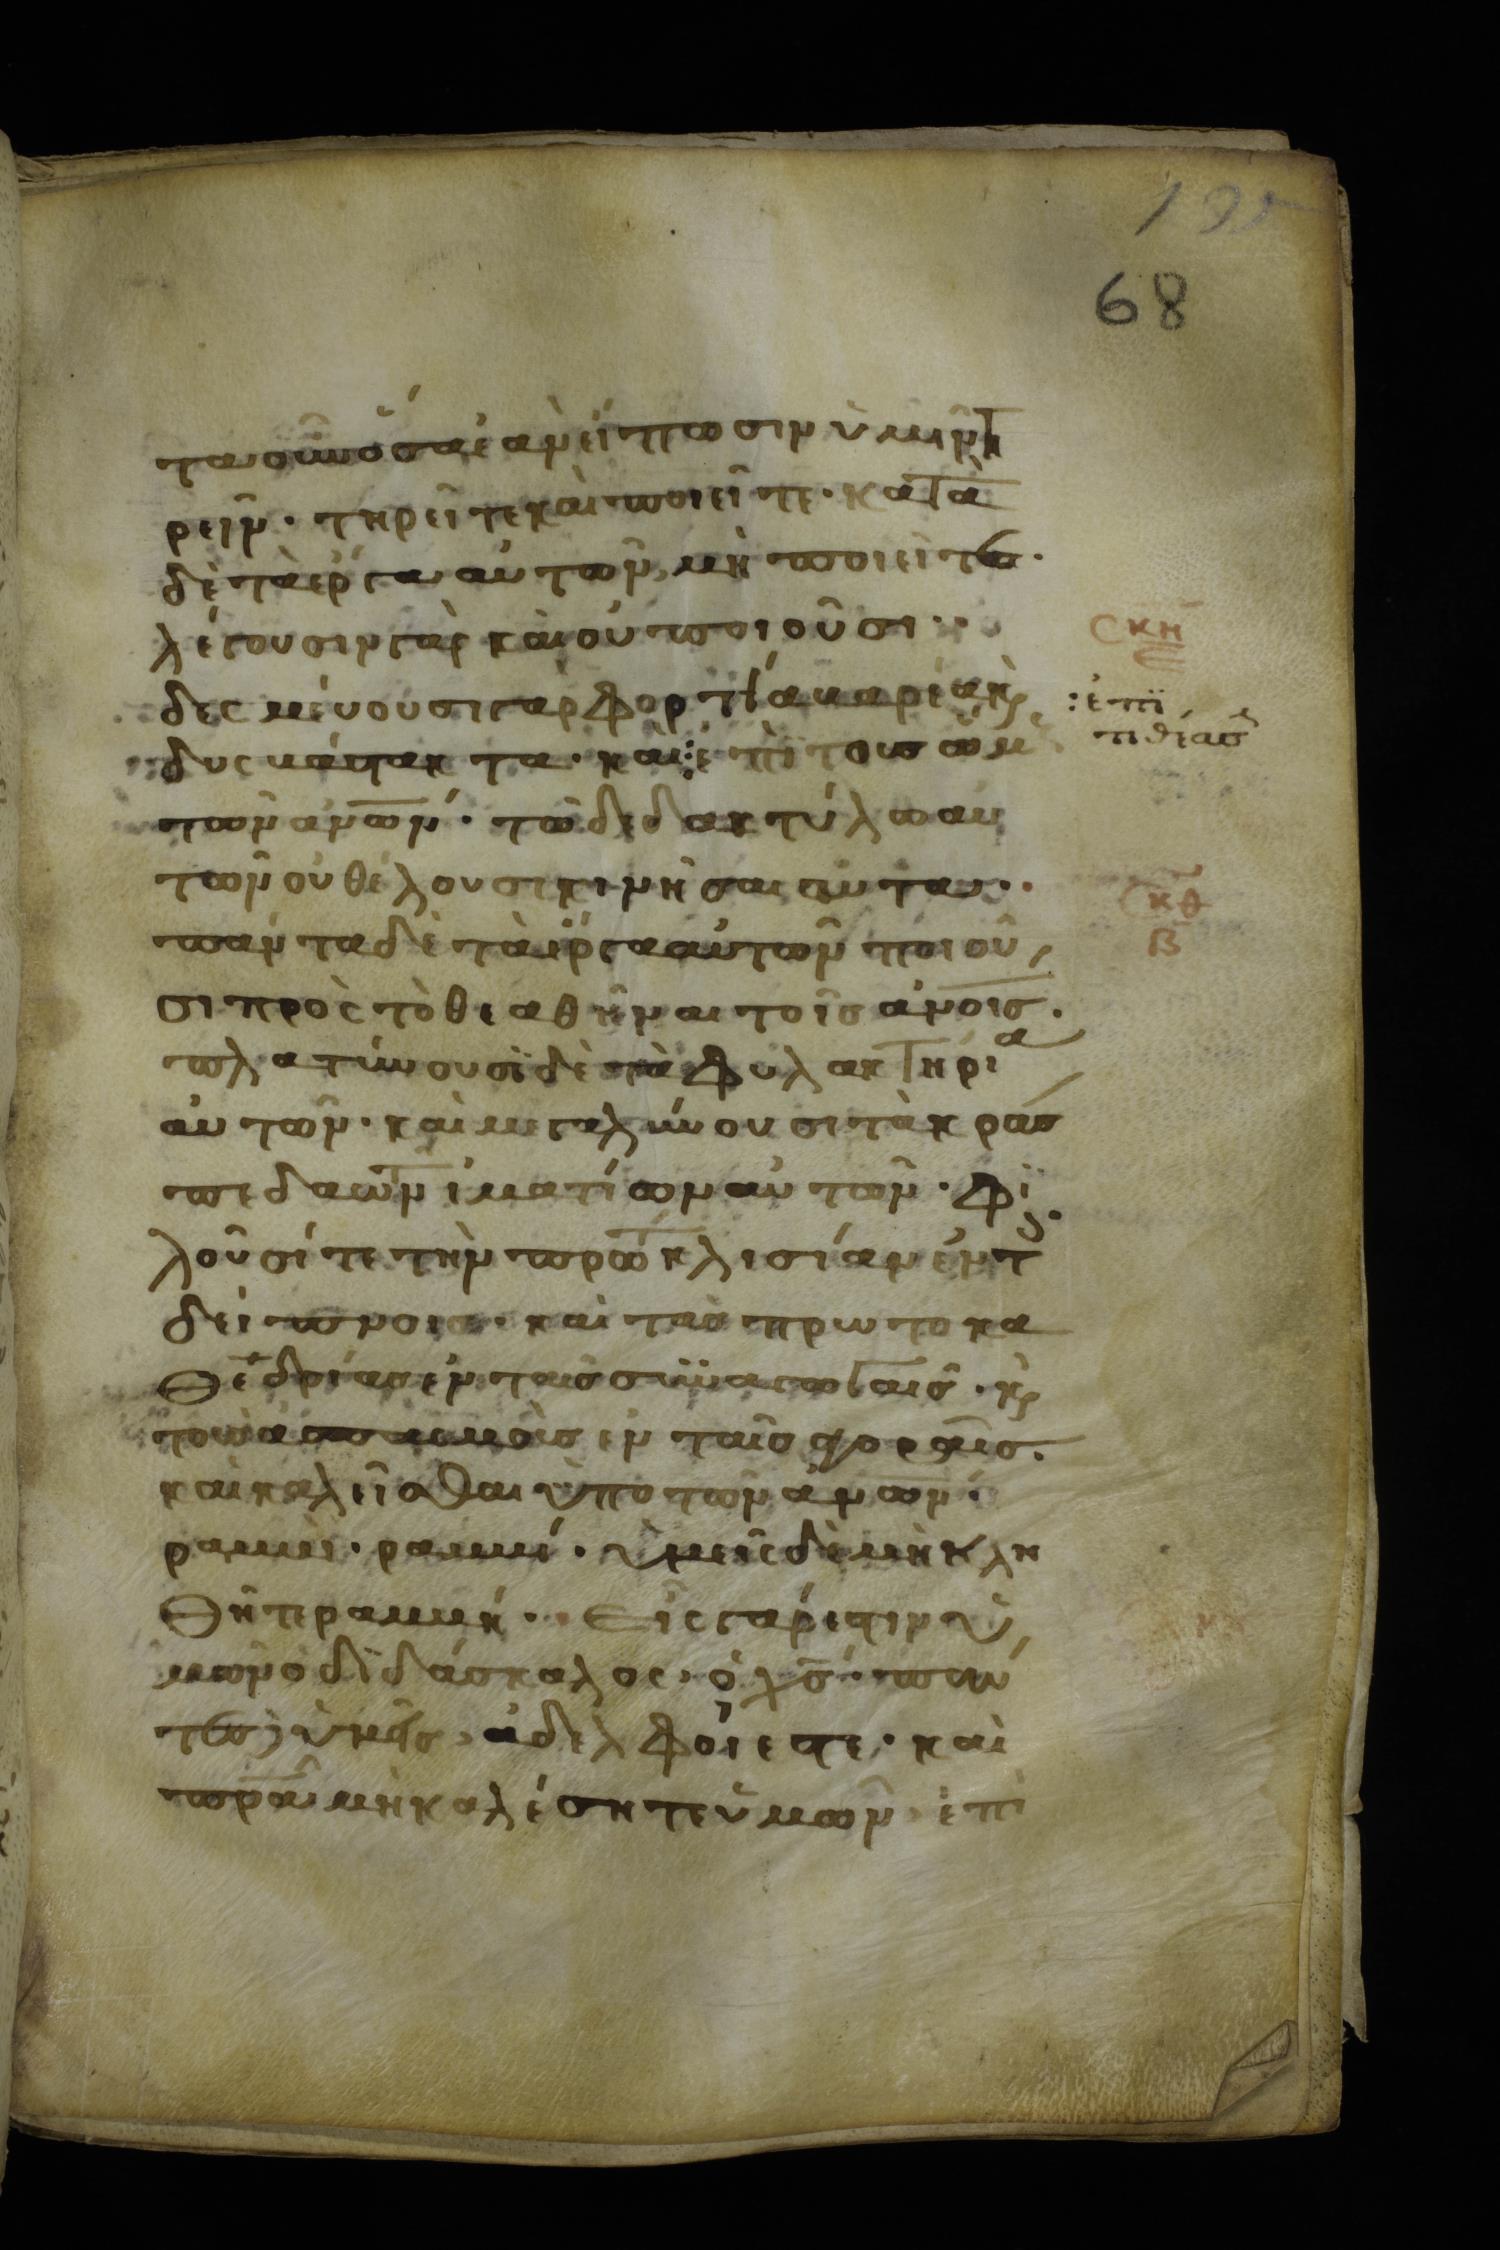 68
τα οὖν ὅσα ἐὰν εἴπωσιν ὑμῖν τη
ρεῖν· τηρεῖτε καὶ ποιεῖτε· κατὰ
δὲ τὰ ἔργα αὐτῶν, μὴ ποιεῖται·
λέγουσιν γὰρ καὶ οὐ ποιοῦσι··
σκη
ε
δεσμεύουσι γὰρ φορτία βαρέα κ(αὶ)
:ἐπι
δυσβάστακτα· καὶ :ἐπὶ τοὺς ὤμους
τιθέασ
τῶν ἀνων· τῶ δὲ δακτύλω αὐ
τῶν οὐ θέλουσι κινῆσαι αὐτα··
κθ
β
πάντα δὲ τὰ ἔργα αὐτῶν ποιοῦ
σι πρὸς τὸ θεαθῆναι τοῖς ἀνοις·
πλατύνουσι δὲ τὰ φυλακτήρια
αὐτῶν· καὶ μεγαλύνουσι τὰ κράσ
πεδα τῶν ἱματίων αὐτῶν· φι
λοῦσί τε τὴν πρωτοκλισίαν ἐν τοῖς
δείπνοις· καὶ τὰς πρωτοκα
θεδρίας ἐν ταῖς συναγωγαῖς· κ(αὶ)
τοὺς ἀσπασμοὺς ἐν ταῖς ἀγοραῖς·
καὶ καλεῖσθαι ὑπὸ τῶν ἀνων·
ραββὶ· ραββί· ὑμεῖς δὲ μὴ κλη
θῆτε ραββί·· Εἷς γάρ ἐστιν ὑ
μῶν ὁ διδάσκαλος· ὁ χς· πάν
τες ὑμεῖς, ἀδελφοί ἐστε· καὶ
πρα μὴ καλέσητε ὑμῶν ἐπὶ